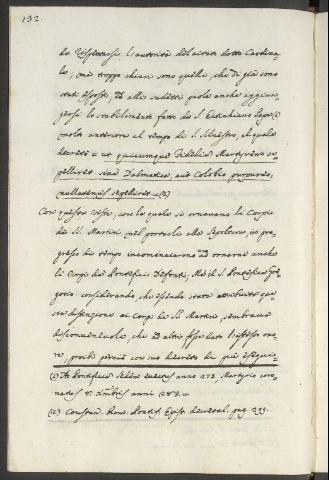 132
do rispettarsi l'autorità del citato dotto Cardina-
le; ma troppo chiari sono quelli, che di già sono
stati esposti, ed alli sudetti puole anche aggiun-
gersi lo stabilimento fatto da S. Eutichiano Papa (1)
molto anteriore al tempo di S. Silvestro, il quale
decretò = ut quicumque Fidelium Martyrem se-
peliret sine Dalmatica, aut Colobio purpureo,
nullatenus sepeliret = (2)
Con questa veste, con la quale si ornavano li Corpi
de SS. Martiri nel portarli alla Sepoltura, in pro-
gresso di tempo incominciarono ad ornarsi anche
li Corpi dei Pontefici Defonti. Ma il S. Pontefice Gre-
gorio considerando, che essendo stata attribuita que-
sta distinzione ai Corpi de SS. Martiri, sembrava
disconvenevole, che ad altri fosse dato l'istesso ono-
re, proibì perciò con suo decreto di più eseguir-
(1) Ad Pontificatum evectus anno 275, Martyrio coro-
natus 8. Xmbris anni 283. =
(2) Constan. Rom. Pontif. Epist. decretal. pag. 299.